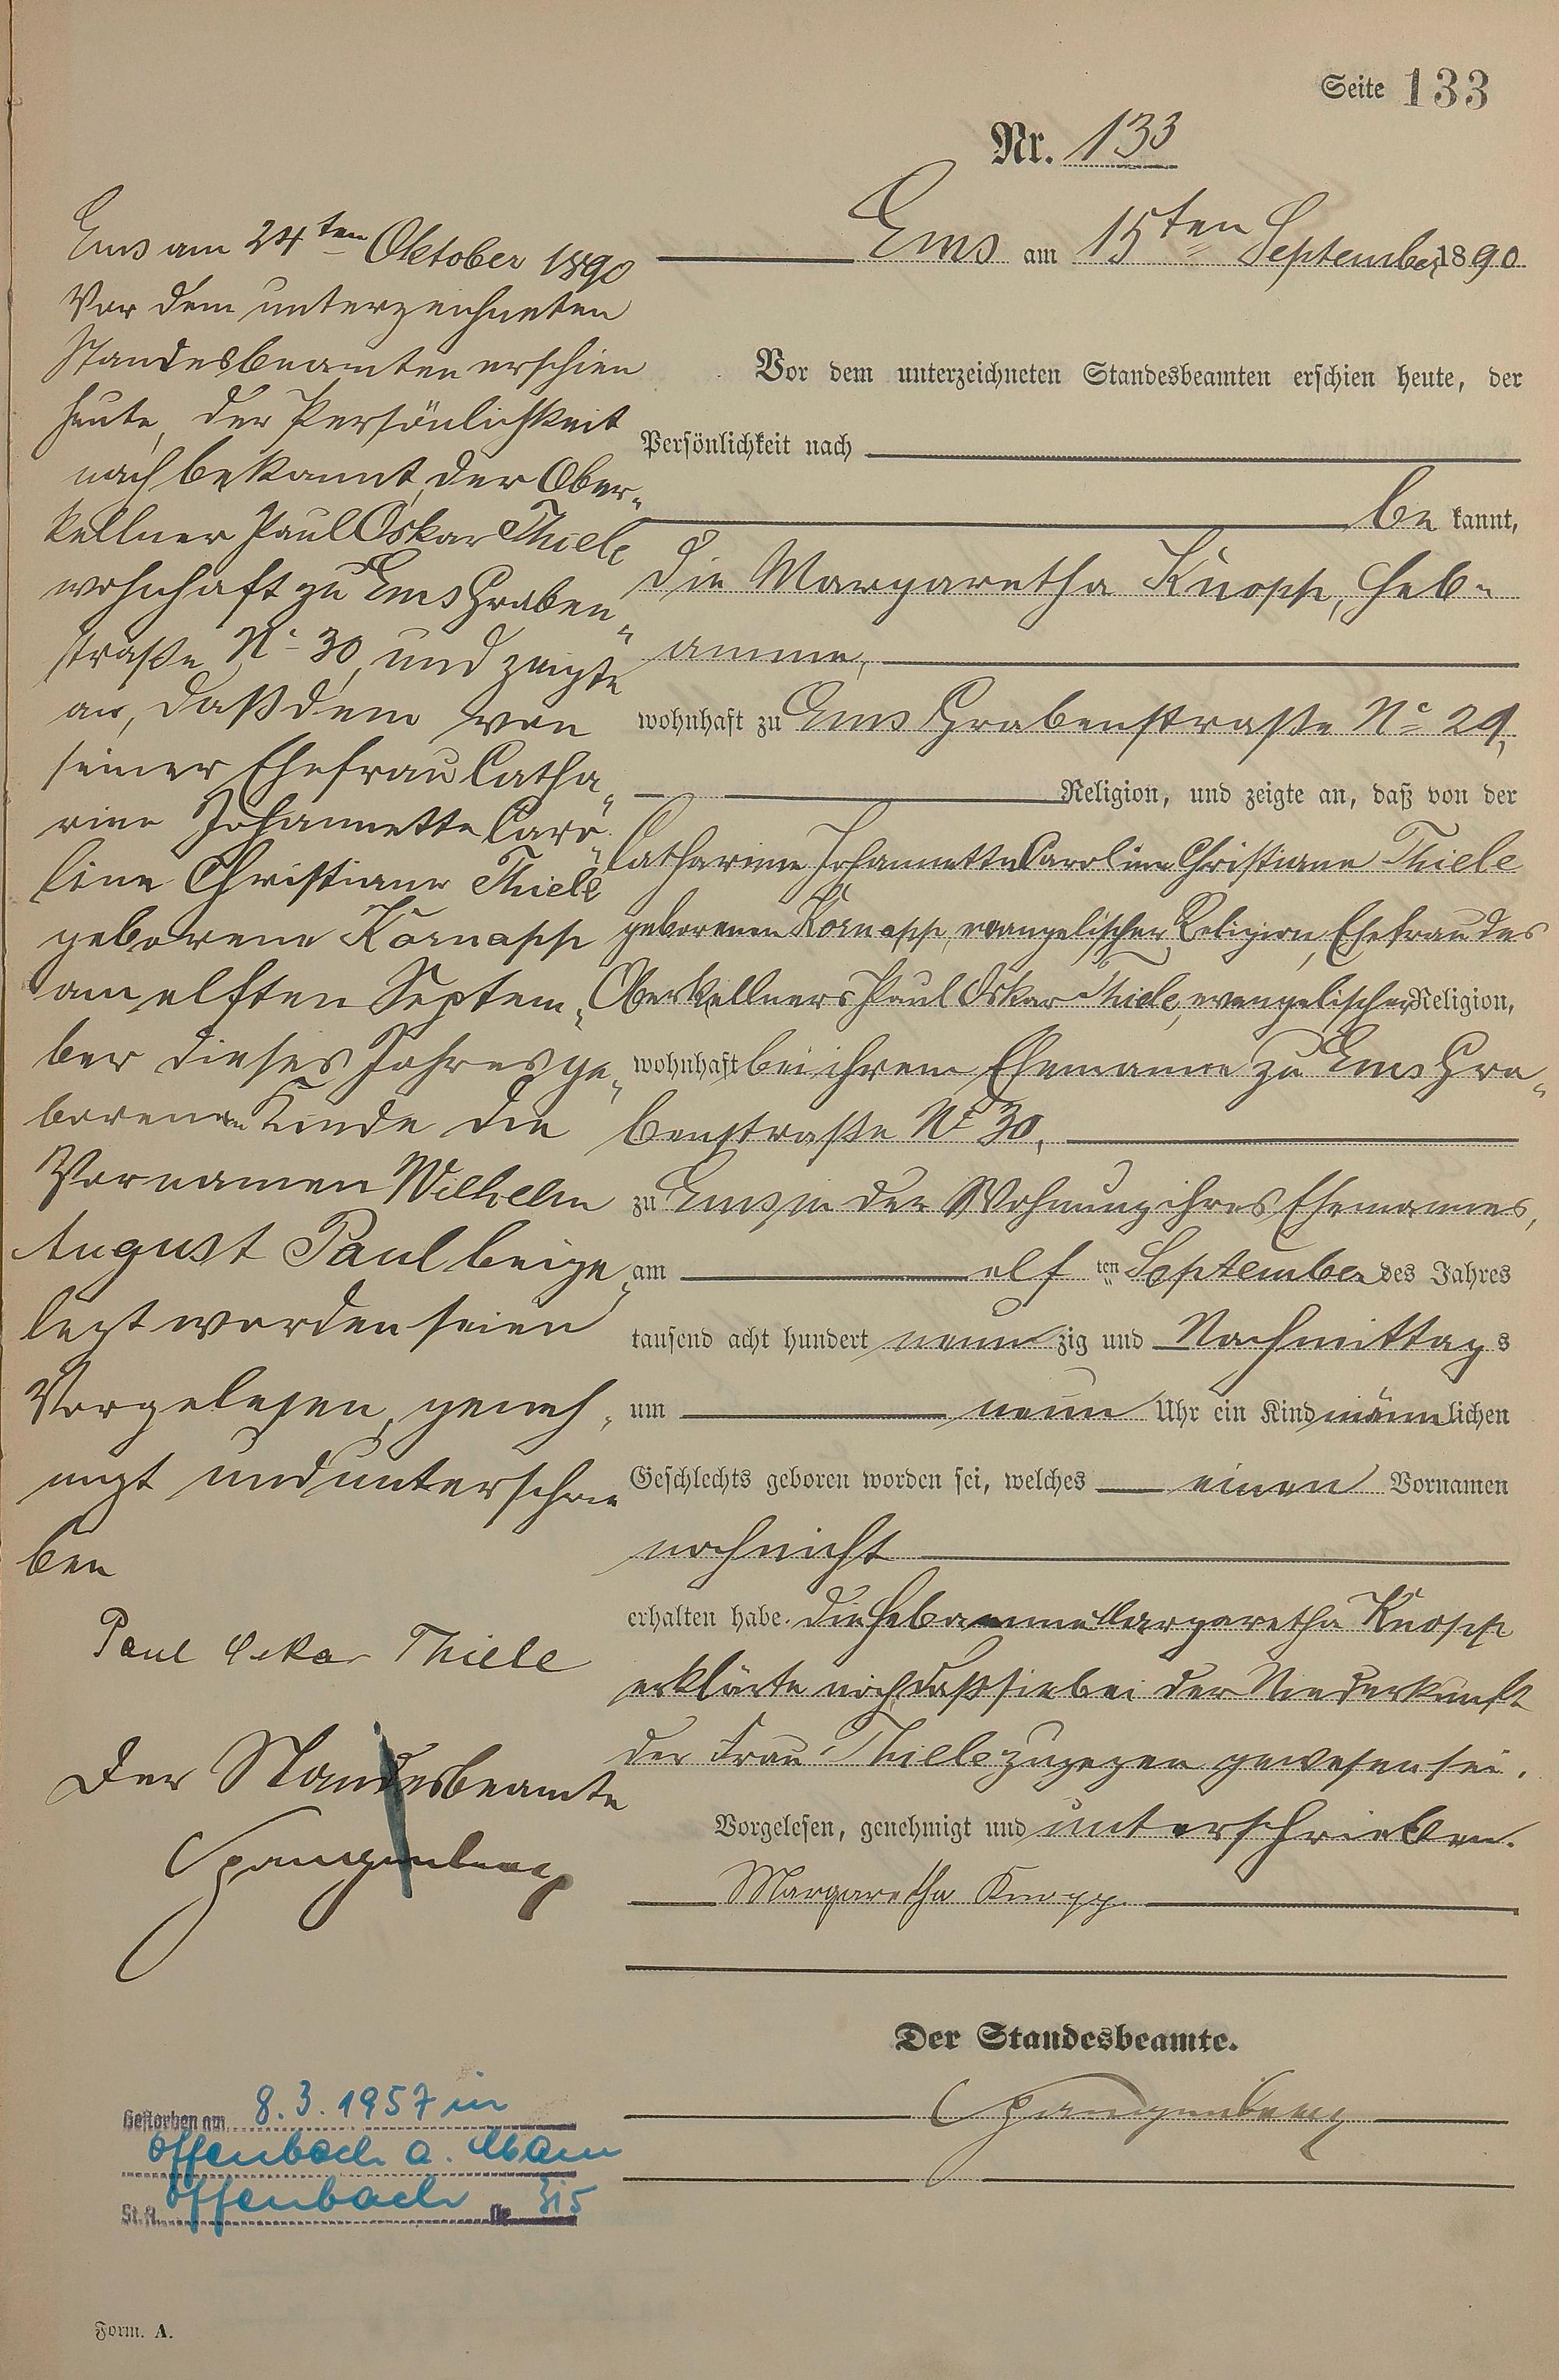 Seite 133
Nr. 133
Ems am 15ten September 1890
Vor dem unterzeichneten Standesbeamten erschien heute, der
Persönlichkeit nach
bekannt,
die Margaretha Knopp, Heb-
amme,
wohnhaft zu Ems Grabenstraße No 29,
Religion, und zeigte an, daß von der
Catharine Johannette Caroline Christiane Thiele
geborenen Kornapp, evangelischer Religion, Ehefrau des
Oberkellners Paul Oskar Thiele, evangelischer Religion,
wohnhaft bei ihrem Ehemanne zu Ems Gra-
benstraße No 30,
zu Ems in der Wohnung ihres Ehemannes,
am elften September des Jahres
tausend acht hundert neunzig und Nachmittags
um neun Uhr ein Kind männlichen
Geschlechts geboren worden sei, welches einen Vornamen
noch nicht
erhalten habe. Die Hebamme Margaretha Knopp
erklärte noch, daß sie bei der Niederkunft
der Frau Thiele zugegen gewesen sei.
Vorgelesen, genehmigt und unterschrieben.
Margaretha Knopp
Der Standesbeamte.
Spangenberg
Ems am 24ten Oktober 1890
Vor dem unterzeichneten
Standesbeamten erschien
heute, der Persönlichkeit
nach bekannt, der Ober-
kellner Paul Oskar Thiele
wohnhaft zu Ems Graben-
straße No 30, und zeigte
an, daß dem von
seiner Ehefrau Catha-
rine Johannette Caro-
line Christiane Thiele
geborene Kornapp
am elften Septem-
ber dieses Jahres ge-
borenen Kinde die
Vornamen Wilhelm
August Paul beige-
legt worden seien
Vorgelesen, geneh-
migt und unterschrie
ben
Paul Oskar Thiele
Der Standesbeamte
Spangenberg
Gestorben am 8.3.1957 in
Offenbach a. Main
St.A. Offenbach Nr. 315
Form. A.